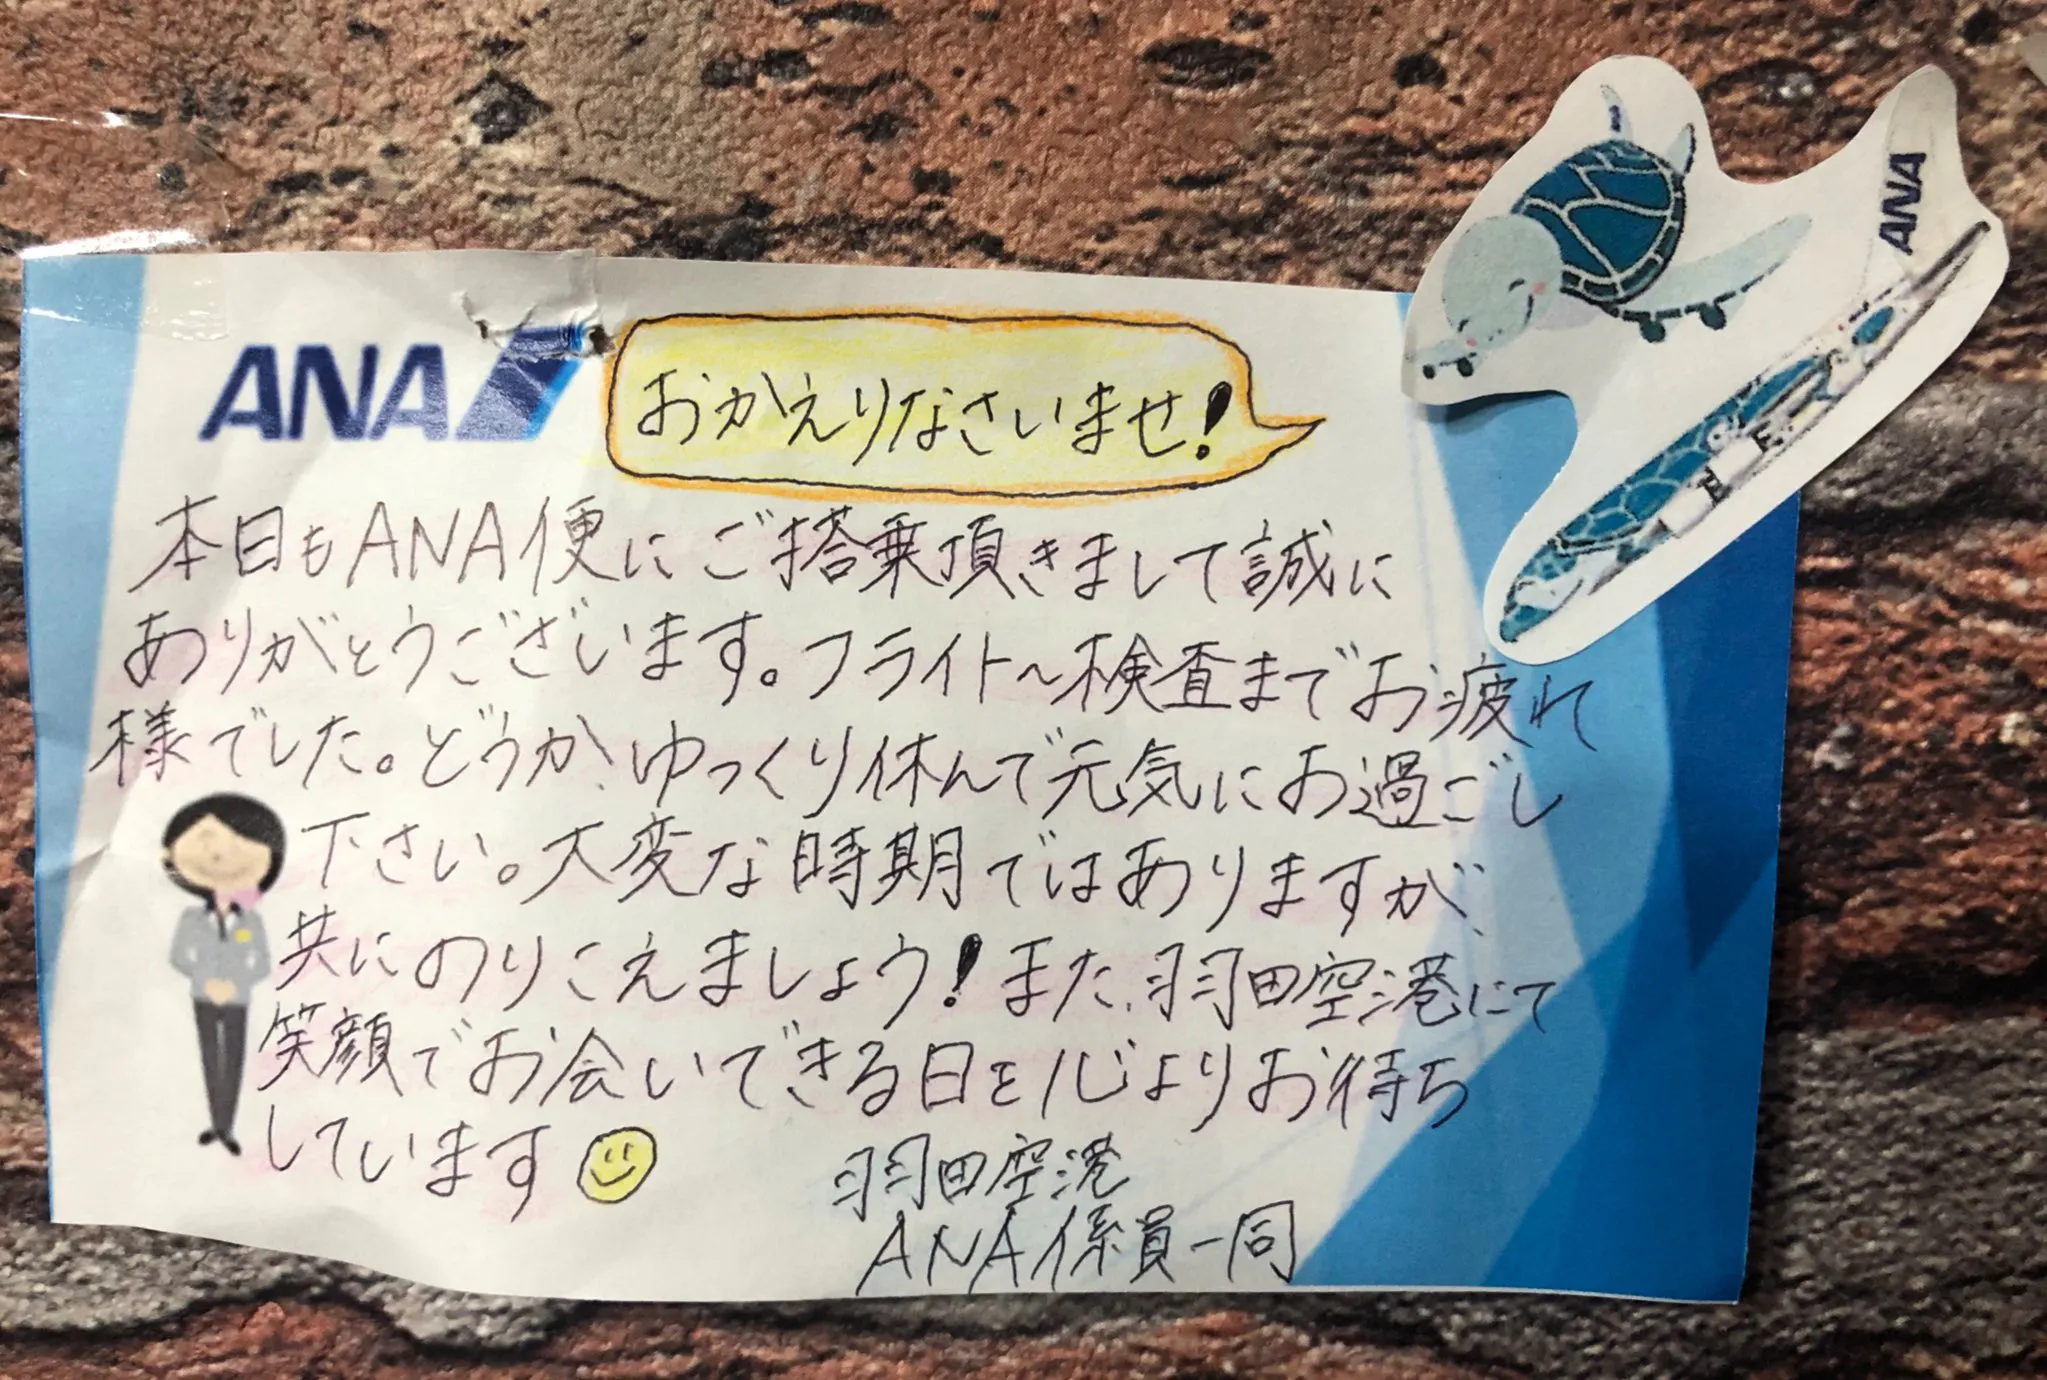 ANA
おかえりなさいませ!
ANA
本日もANA便にご搭乗頂きまして誠に
ありがとうございます。フライト〜検査までお疲れ
様でした。どうか、ゆっくり休んで元気にお過ごし
下さい。大変な時期ではありますが、
共にのりこえましょう!また、羽田空港にて
笑顔でお会いできる日を心よりお待ち
しています
羽田空港
ANA係員一同